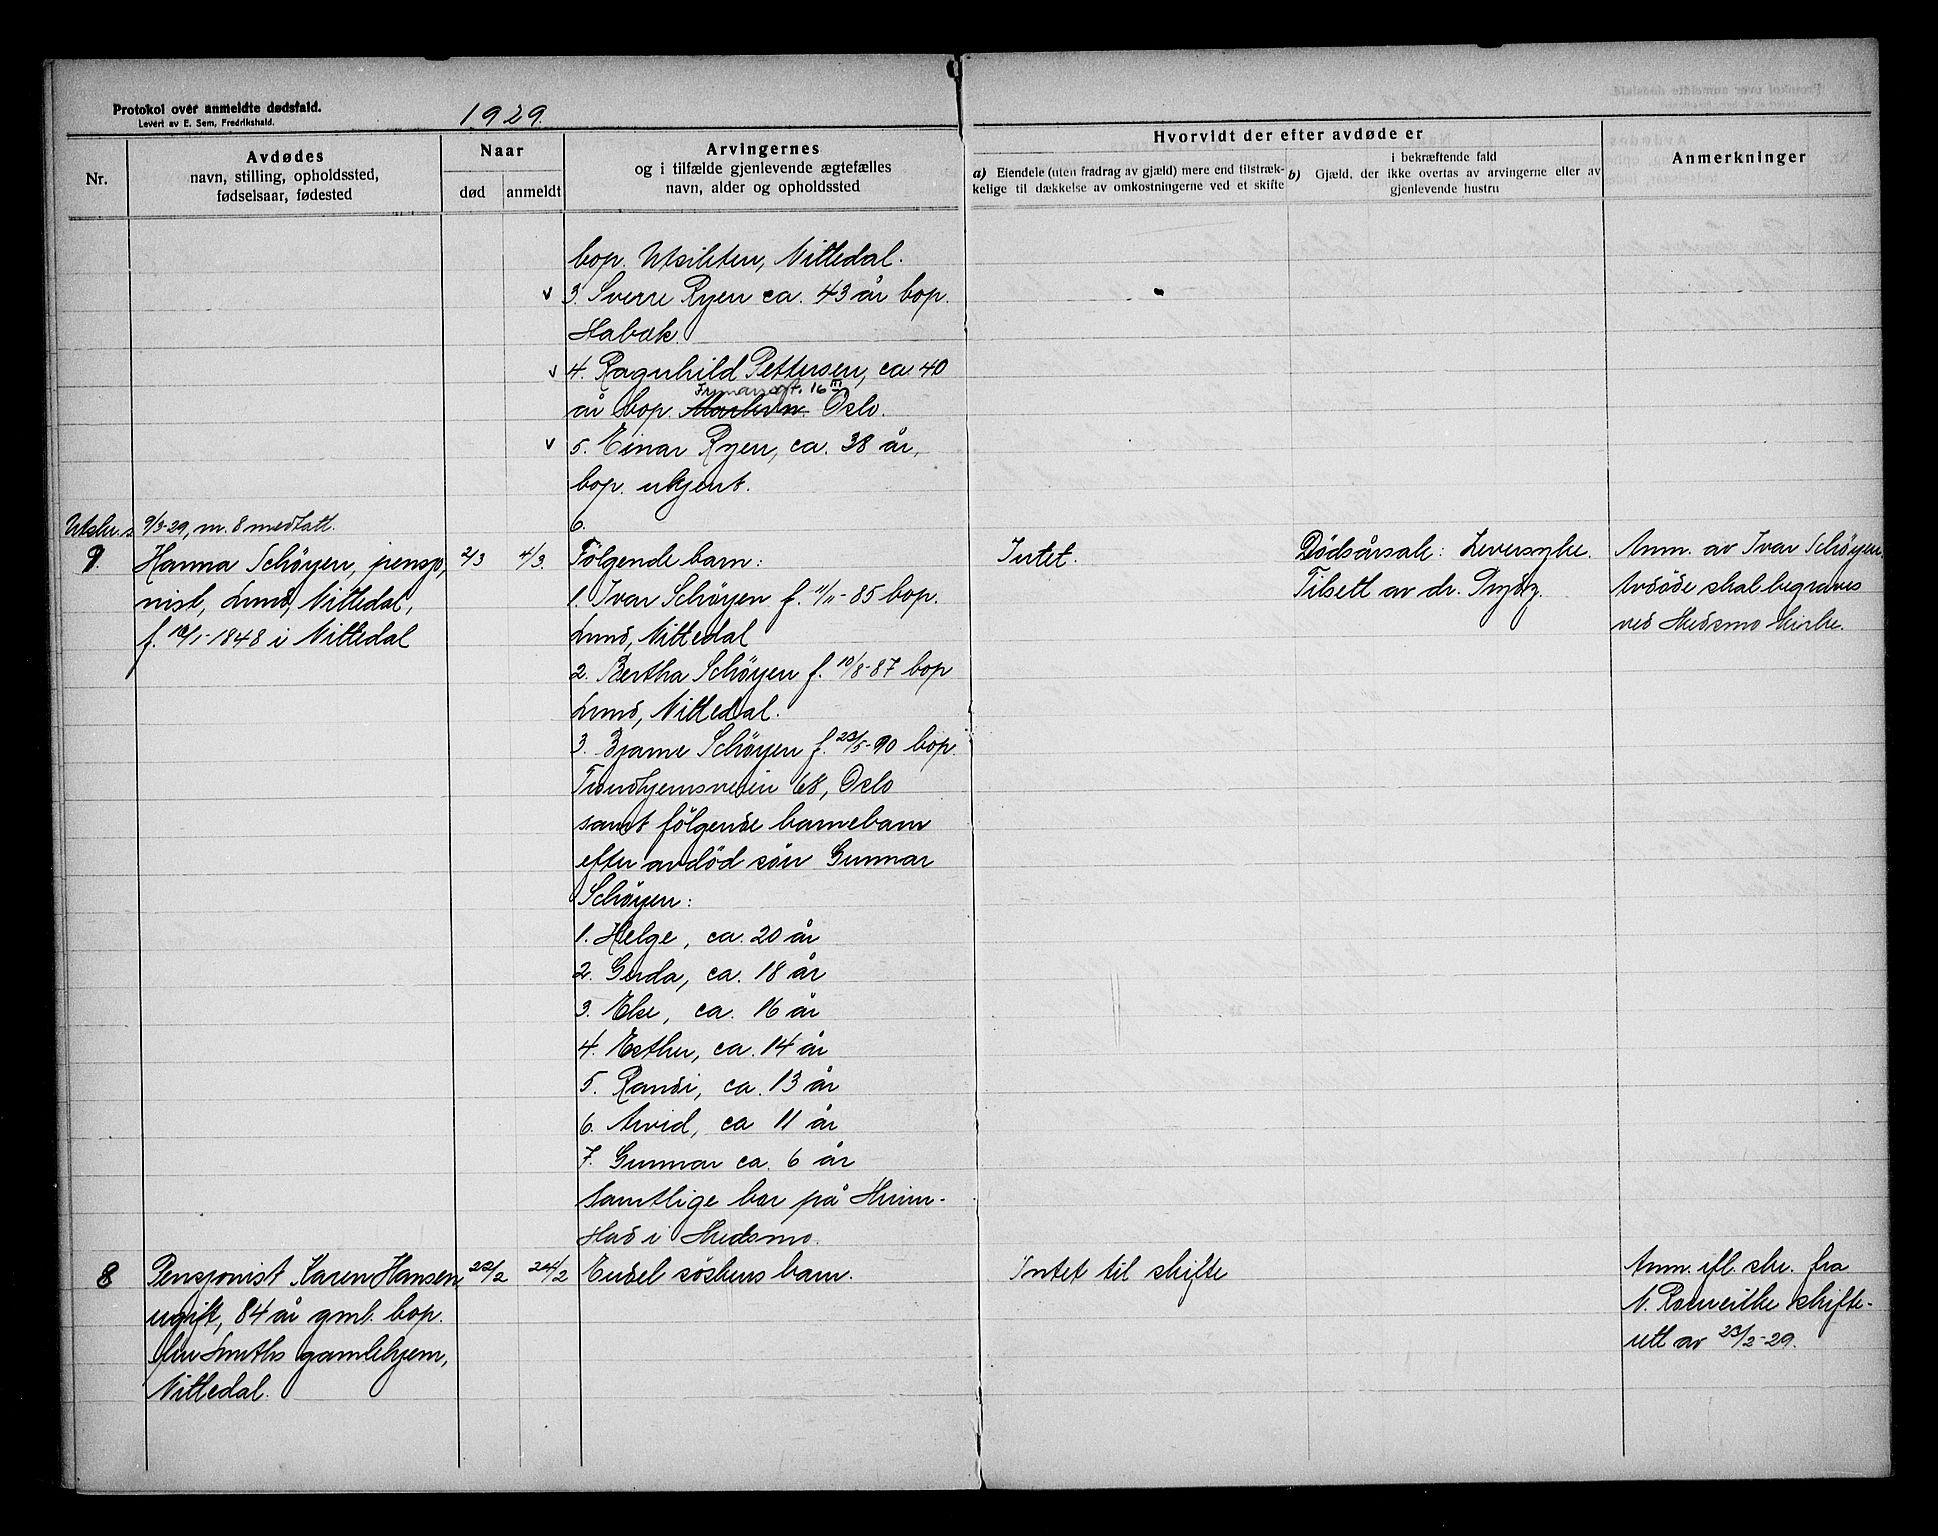 Protokol over anmeldte dødsfald.
Levert av E. Sem, Fredrikshald.
1929.
Nr.
Avdødes
navn, stilling, opholdssted,
fødselsaar, fødested
Naar
død
anmeldt
Arvingernes
og i tilfælde gjenlevende ægtefælles
navn, alder og opholdssted
Hvorvidt der efter avdøde er
a) Eiendele (uten fradrag av gjæld) mere end tilstræk-
kelige til dækkelse av omkostningerne ved et skifte
i bekræftende fald
b) Gjæld, der ikke overtas av arvingerne eller av
gjenlevende hustru
Anmerkninger
bop. Utsikten, Nittedal.
v 3. Sverre Ryen ca. 43 år bop.
Habak.
v 4. Ragnhild Pettersen, ca 40
16 III
år bop. Oslo.
v 5. Einar Ryen, ca. 38 år,
bop. ukjent.
6.
Utskr. s. 9/3-29, m. 8 medtatt.
9.
Hanna Schøyen, pensjo-
nist, Lund, Nittedal,
f. 12/1-1848 i Nittedal
2/3
4/3.
Følgende barn:
1. Ivar Schøyen f. 11/11-85 bop.
Lund, Nittedal
2. Bertha Schøyen f. 10/8-87 bop
Lund, Nittedal.
3. Bjarne Schøyen f. 23/5-90 bop.
Trondhjemsveien 68, Oslo
samt følgende barnebarn
efter avdød søn Gunnar
Schøyen:
1. Helge, ca. 20 år
2. Gerda, ca. 18 år
3. Else, ca. 16 år
4. Esther, ca. 14 år
5. Randi, ca. 13 år
6. Arvid, ca 11 år
7. Gunnar ca. 6 år
Samtlige bor på
i Skedsmo.
Intet.
Dødsårsak: Leversyke.
Tilsett av dr.
Anm. av Ivar Schøyen.
Avdøde skal begraves
ved Skedsmo kirke.
8
Pensjonist Karen Hansen,
ugift, 84 år gml. bop.
fru Smiths gamlehjem,
Nittedal.
22/2
24/2
Endel søskens barn.
Intet til skifte
Anm. ifl. skr. fra
N. Romerike skifte-
rett av 23/2-29.